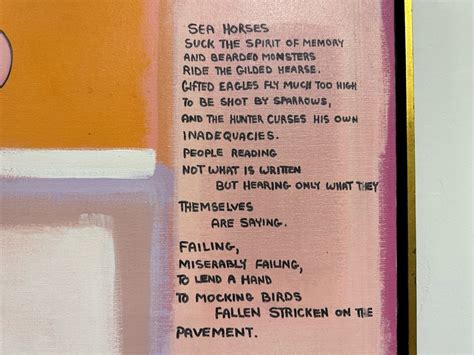 SEA HORSES
SUCK THE SPIRIT OF MEMORY
AND BEARDED MONSTERS
RIDE THE GILDED HEARSE.
GIFTED EAGLES FLY MUCH TOO HIGH
TO BE SHOT BY SPARROWS,
AND THE HUNTER CURSES HIS OWN
INADEQUACIES.
PEOPLE READING
NOT WHAT IS WRITTEN
BUT HEARING ONLY WHAT THEY
THEMSELVES
ARE SAYING.
FAILING,
MISERABLY FAILING,
TO LEND A HAND
TO MOCKING BIRDS
FALLEN STRICKEN ON THE
PAVEMENT.